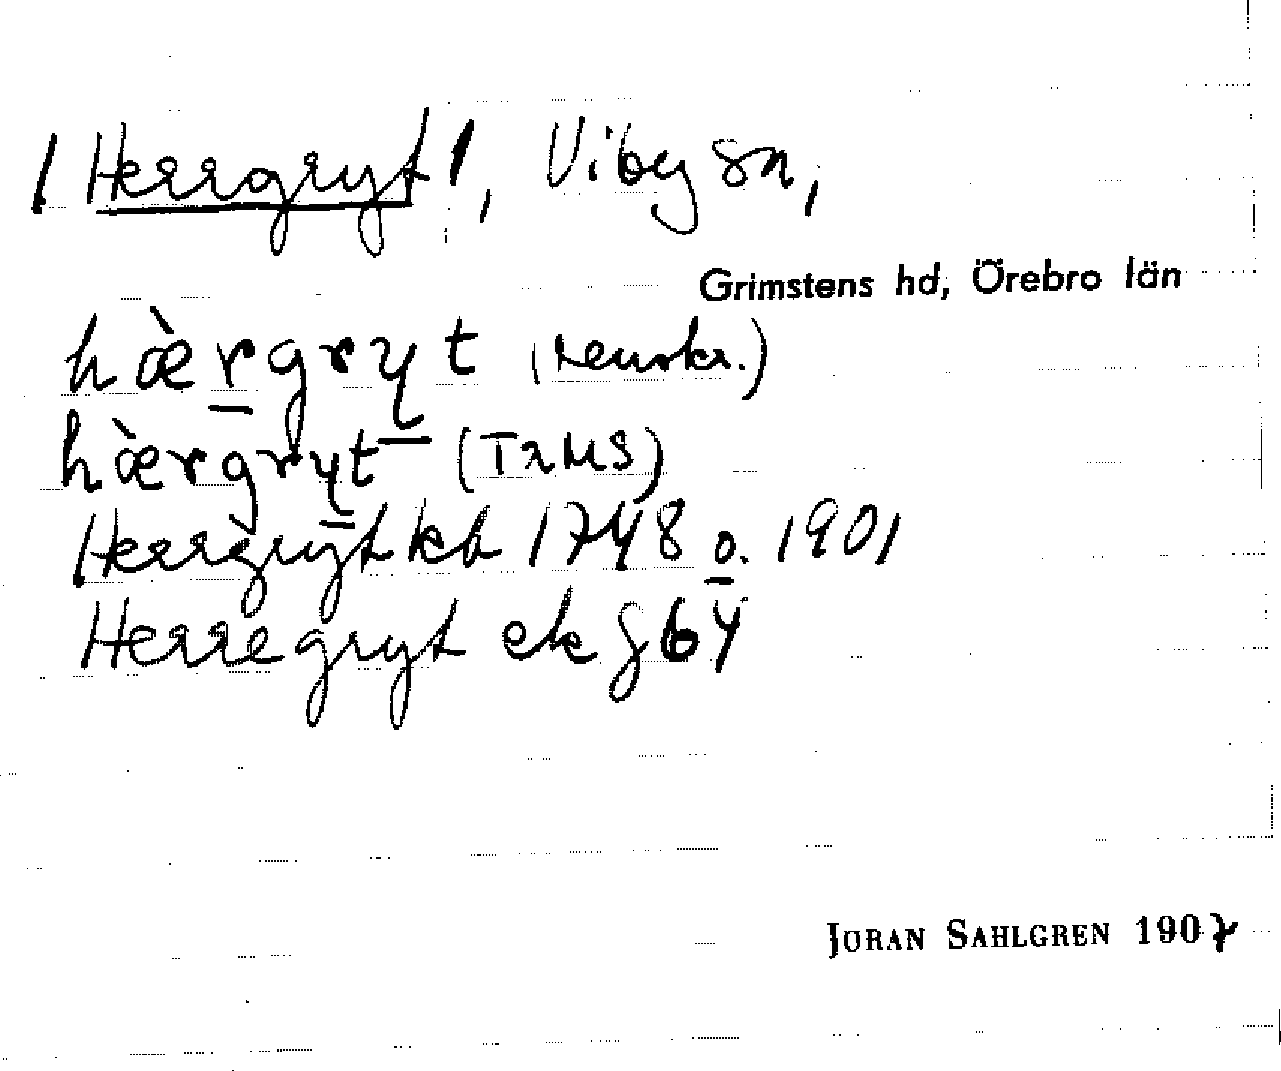 (Herrgryt), Viby sn,
Grimstens hd, Örebro län
hæ̀rgryt (renskr.)
hæ̀rgryt (TrMS)
Herrgryt kb 1748 o. 1901
Herregryt ek 864
JÖRAN SAHLGREN 1907